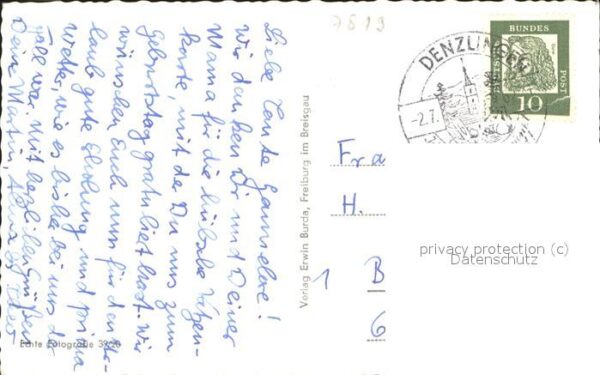 Liebe Tante Hannelore!
wir danken Dir und Deiner
Mama für die hübsche
karte, mit der Du uns zum
Geburtstag gratuliert hast. Wir
wünschen Euch nun für den Ur-
laub gute Erholung und prima
Wetter, wie es bisher bei uns der
Fall war. Mit herzlichen Grüßen
Deine
Echte Fotografie
Verlag Erwin Burda, Freiburg im Breisgau
7819
DENZLINGEN
-2.7.
DEUTSCHE
BUNDES
POST
Dürer
10
Fra
H.
1 B
6
privacy protection (c)
Datenschutz